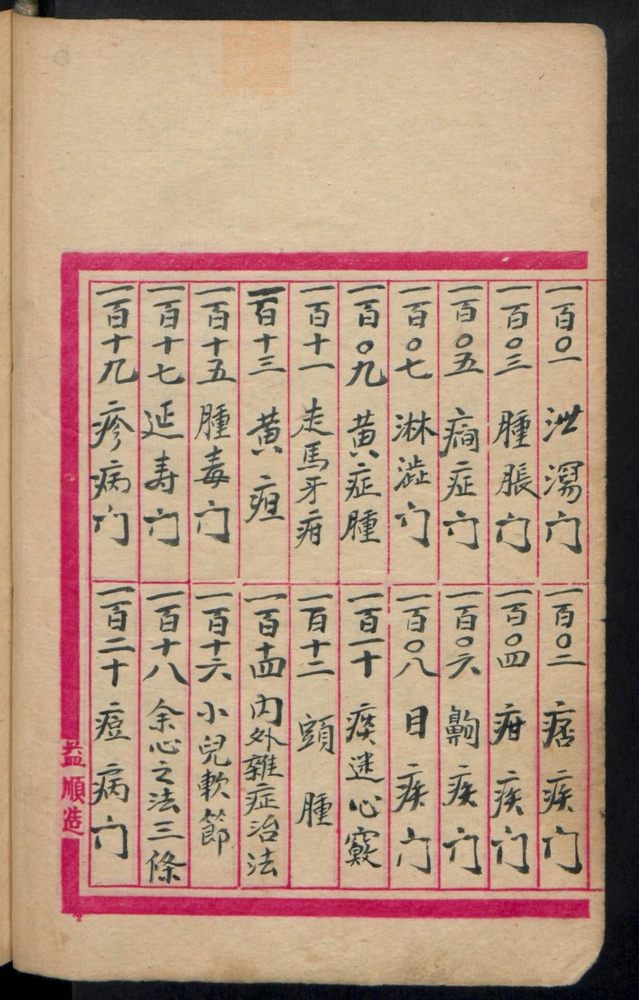 一百〇一 泄瀉门
一百〇二 痞疾门
一百〇三 腫脹门
一百〇四 疳疾门
一百〇五 癎症门
一百〇六 齁疾门
一百〇七 淋澁门
一百〇八 目疾门
一百〇九 黄症腫
一百一十 痰迷心竅
一百十一 走馬牙疳
一百十二 頭腫
一百十三 黄疸
一百十四 内外雜症治法
一百十五 腫毒门
一百十六 小兒軟節
一百十七 延寿门
一百十八 余心之法三條
一百十九 疹病门
一百二十 痘病门
益順造